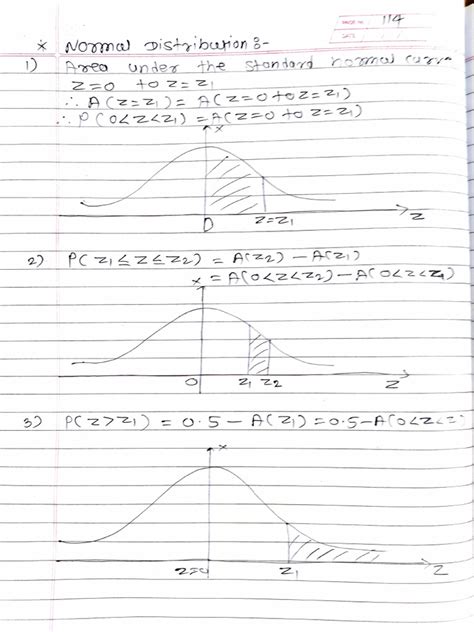 PAGE NO. 114
DATE
* Normal Distribution :-
1) Area under the standard normal curve
z=0 to z=z1
∴ A(z=z1) = A(z=0 to z=z1)
∴ P(0<z<z1) = A(z=0 to z=z1)
x
0 z=z1 z
2) P(z1≤z≤z2) = A(z2) - A(z1)
= A(0<z<z2) - A(0<z<z1)
x
0 z1 z2 z
3) P(z>z1) = 0.5 - A(z1) = 0.5 - A(0<z<z
x
z=0 z1 z